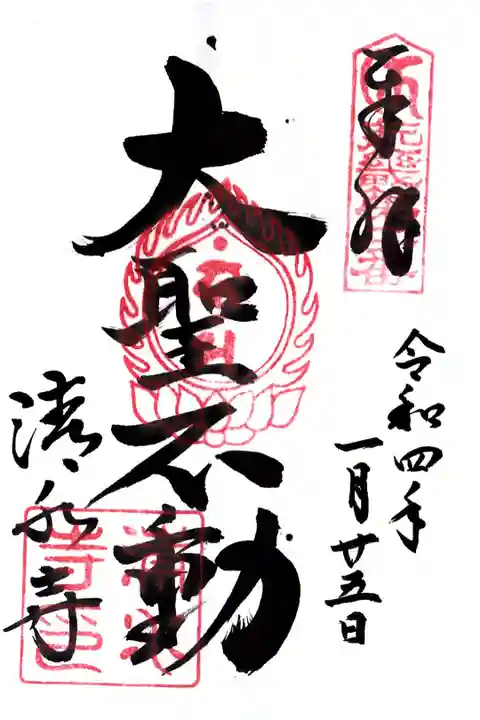 奉拝
令和四年
一月廿五日
大聖不動
清水寺